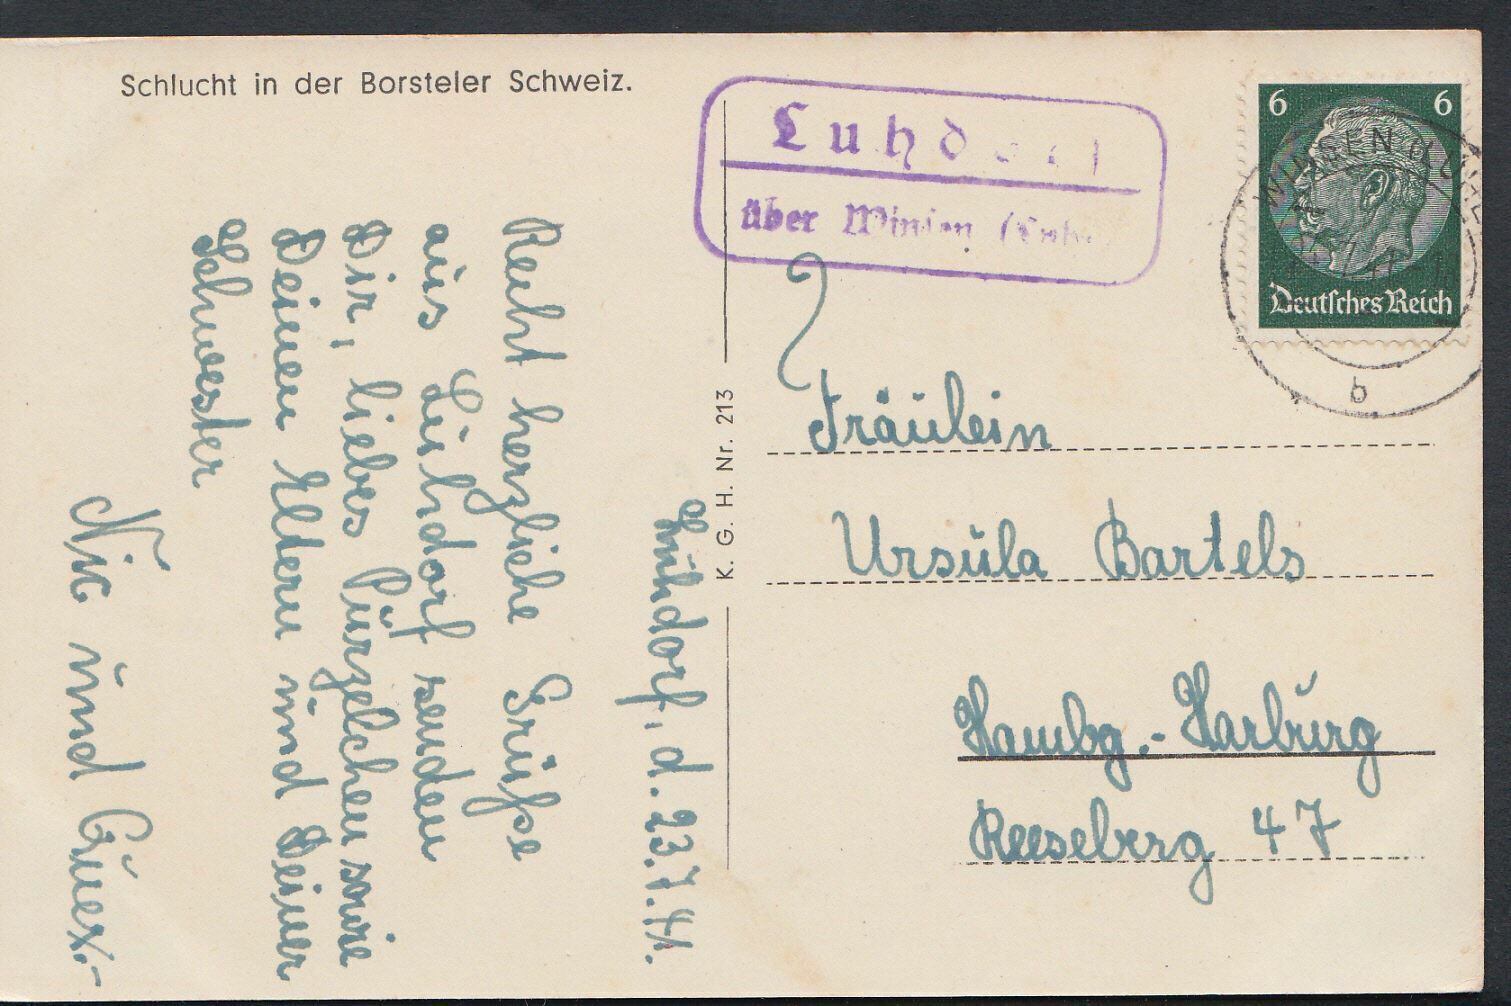 Schlucht in der Borsteler Schweiz.
Luhdorf
über Winsen (Luhe)
6 6
Deutsches Reich
WINSEN (LUHE)
b
K. G. H. Nr. 213
Lühdorf, d. 23.7.41.
Recht herzliche Grüße
aus Lühdorf senden
Dir, liebes Pürzelchen sowie
Deinen Eltern und Deiner
Schwester
und
Fräulein
Ursula Bartels
Hambg.-Harburg
Reeseberg 47